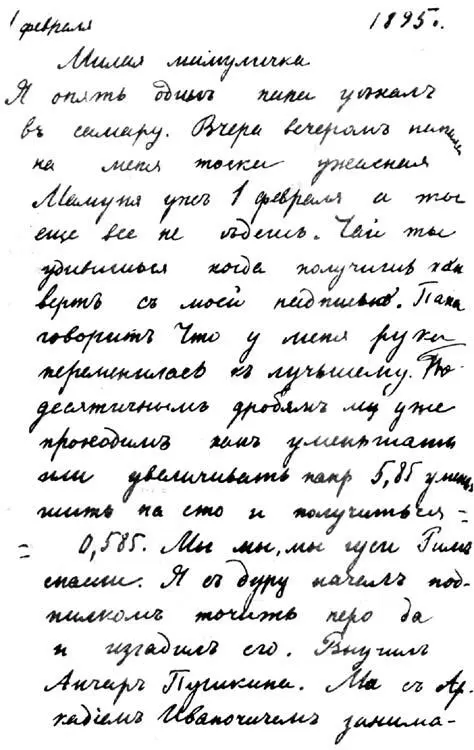 1 февраля 1895 г.
Милая мамуличка
Я опять одинъ папа уѣхалъ
въ самару. Вчера вечеромъ напала
на меня тоска ужасная
Мамуня ужъ 1 февраля а ты
еще все не ѣдешь. Чай ты
удивишься когда получишь кон
вертъ съ моей надписью. Папа
говоритъ что у меня рука
переменилась къ лучшему. По
десятичнымъ дробямъ мы уже
проходимъ какъ уменьшать
или увеличивать напр 5,85 умень
шить на сто и получиться =
= 0,585. Мы мы, мы гуси Римъ
спасли. Я съ дуру началъ под-
пилкомъ точить перо да
и изгадилъ его. Выучилъ
Анчаръ Пушкина. Мы съ Ар-
кадіемъ Ивановичемъ занима-